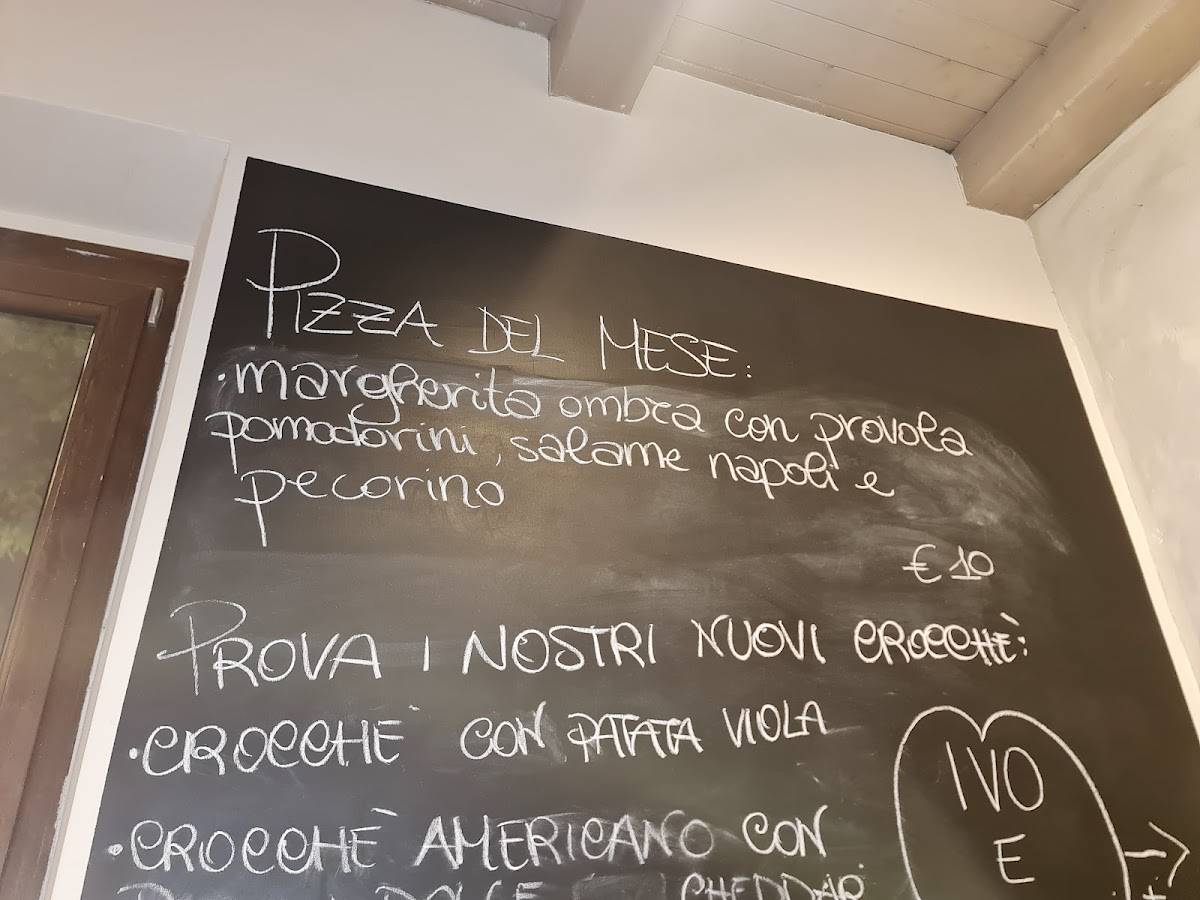 PIZZA DEL MESE:
·margherita ombra con provola
pomodorini, salame napoli e
pecorino
€ 10
PROVA I NOSTRI NUOVI CROCCHÈ:
·CROCCHÈ CON PATATA VIOLA
·CROCCHÈ AMERICANO CON
DOLCE CHEDDAR
IVO
E